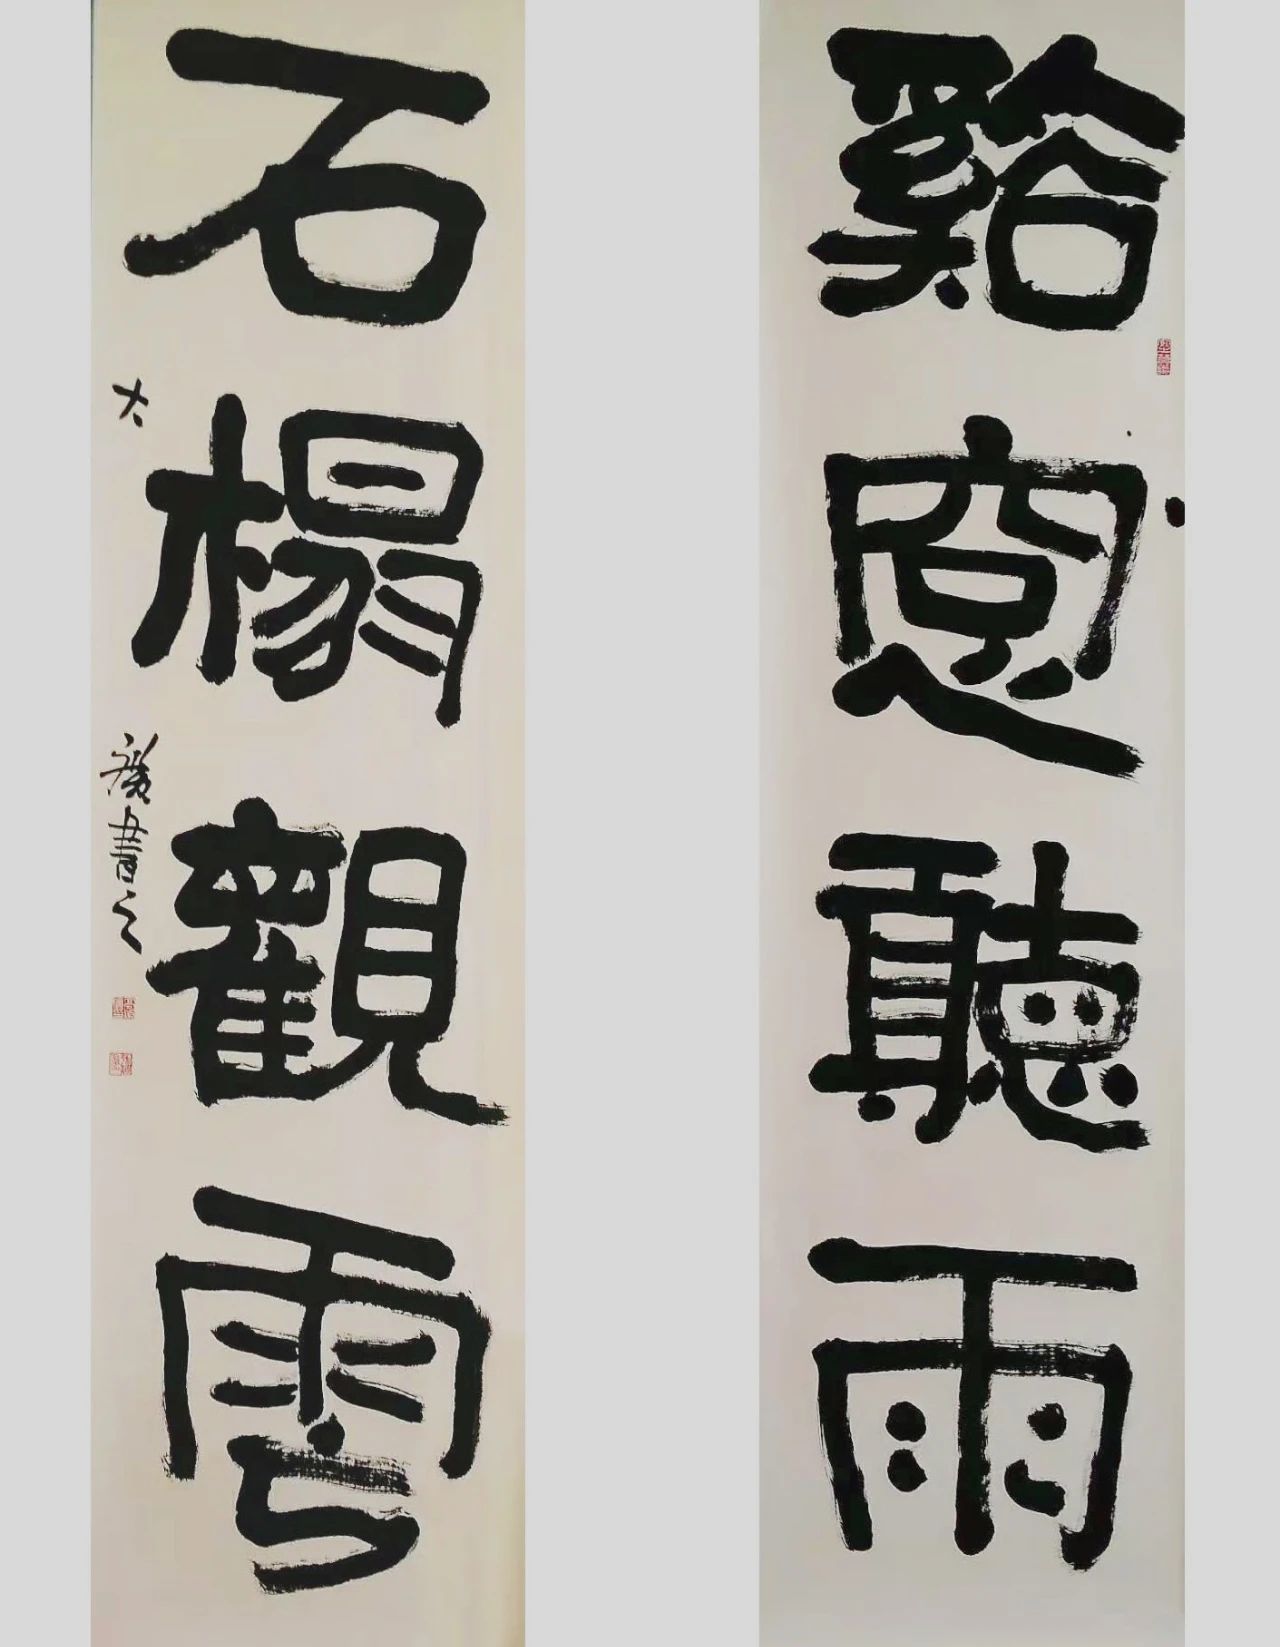 谿窓聽雨
石榻觀雲
大
書之